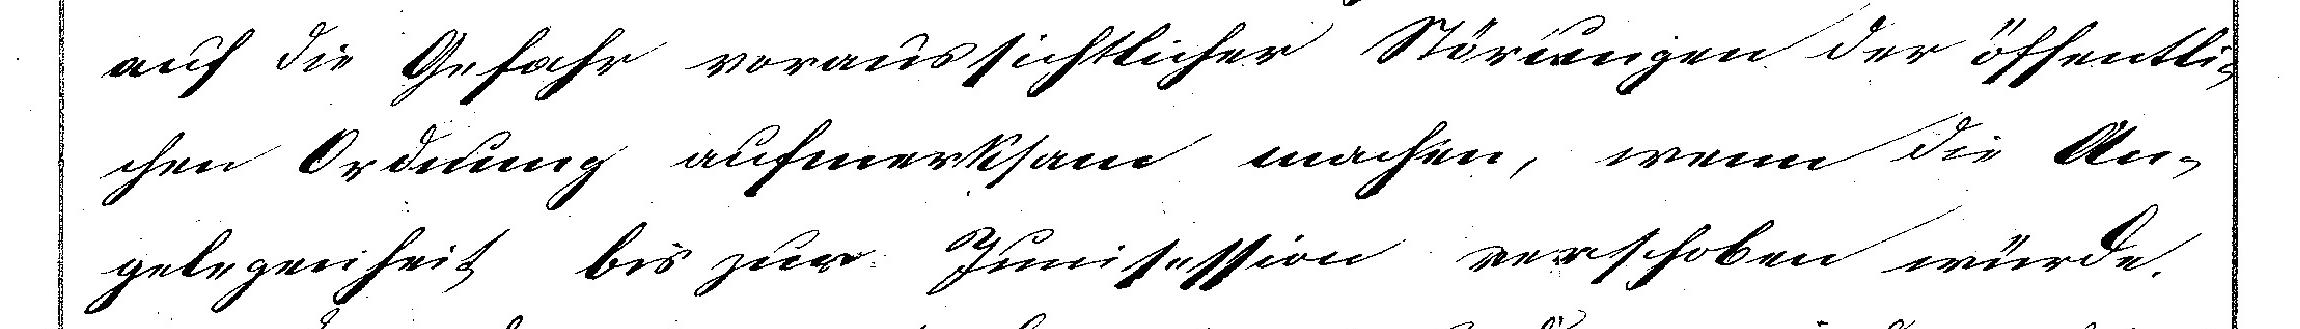 auf die Gefahr voraussichtlicher Störungen der öffentli-
chen Ordnung aufmerksam machen, wenn die An-
gelegenheit bis zur Junisession verschoben würde.